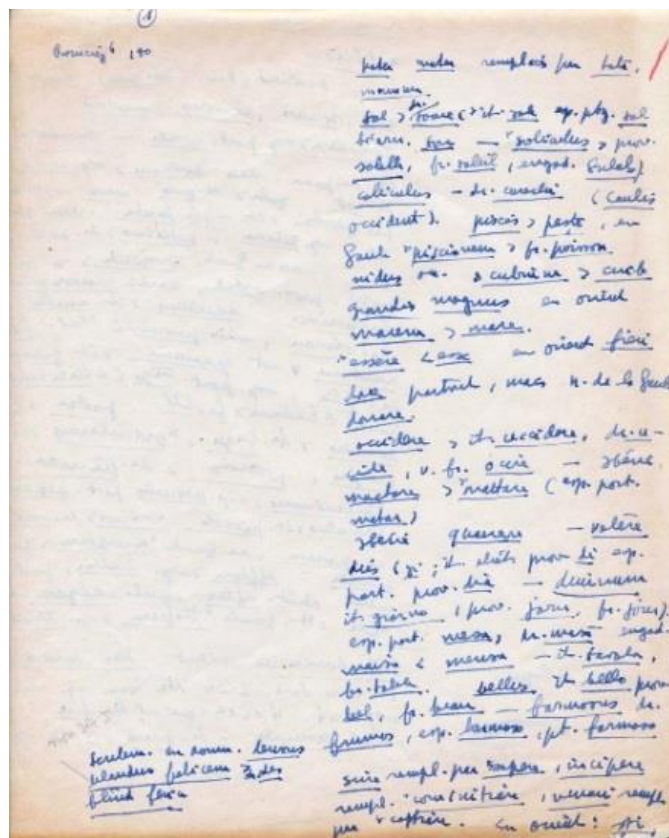 ①
180
pater mater remplacés par tata,
mamma.
sol > dr. soare (> it. sole esp. ptg. sol
"soliculus > prov.
solelh, fr. soleil, engad. sulalg)
cauliculus - dr. (caulis
occident). piscis > peşte, en
Gaule "piscionem > fr. poisson
nidus > cuib
grandis magnus en orient
> mare.
"essere < esse en orient fieri
dare partout, mais n. de la Gaule
donare.
occidere > it. uccidere, dr. u-
cide, v. fr. ocire - Ibérie
mactare > "mattare (esp. port.
matar)
Ibérie quaerere - volere
dies (zi; it. prov. di esp.
port. prov. dia - diurnum
it. giorno (prov. jorn, fr. jour),
esp. port. mesa, dr. masă engad.
maisa < mensa - it. tavola,
fr. table. bellus it. bello prov.
bel, fr. beau - formosus dr.
frumos, esp. hermoso, pt. formoso
Seulem. en roum.
blînd
scire rempl. par sapere, incipere
rempl. "cominitiare, venari rempl.
par "captiare. En orient: şti,